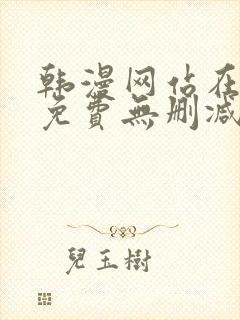 韩漫网佔在
免費無删减
兒玉樹